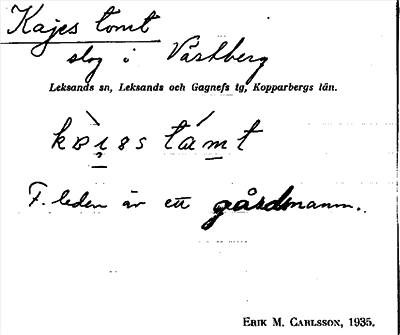 Kajes tomt
slog i Västberg
Leksands sn, Leksands och Gagnefs tg, Kopparbergs län.
F. leden är ett gårdsnamn.
ERIK M. CARLSSON, 1935.